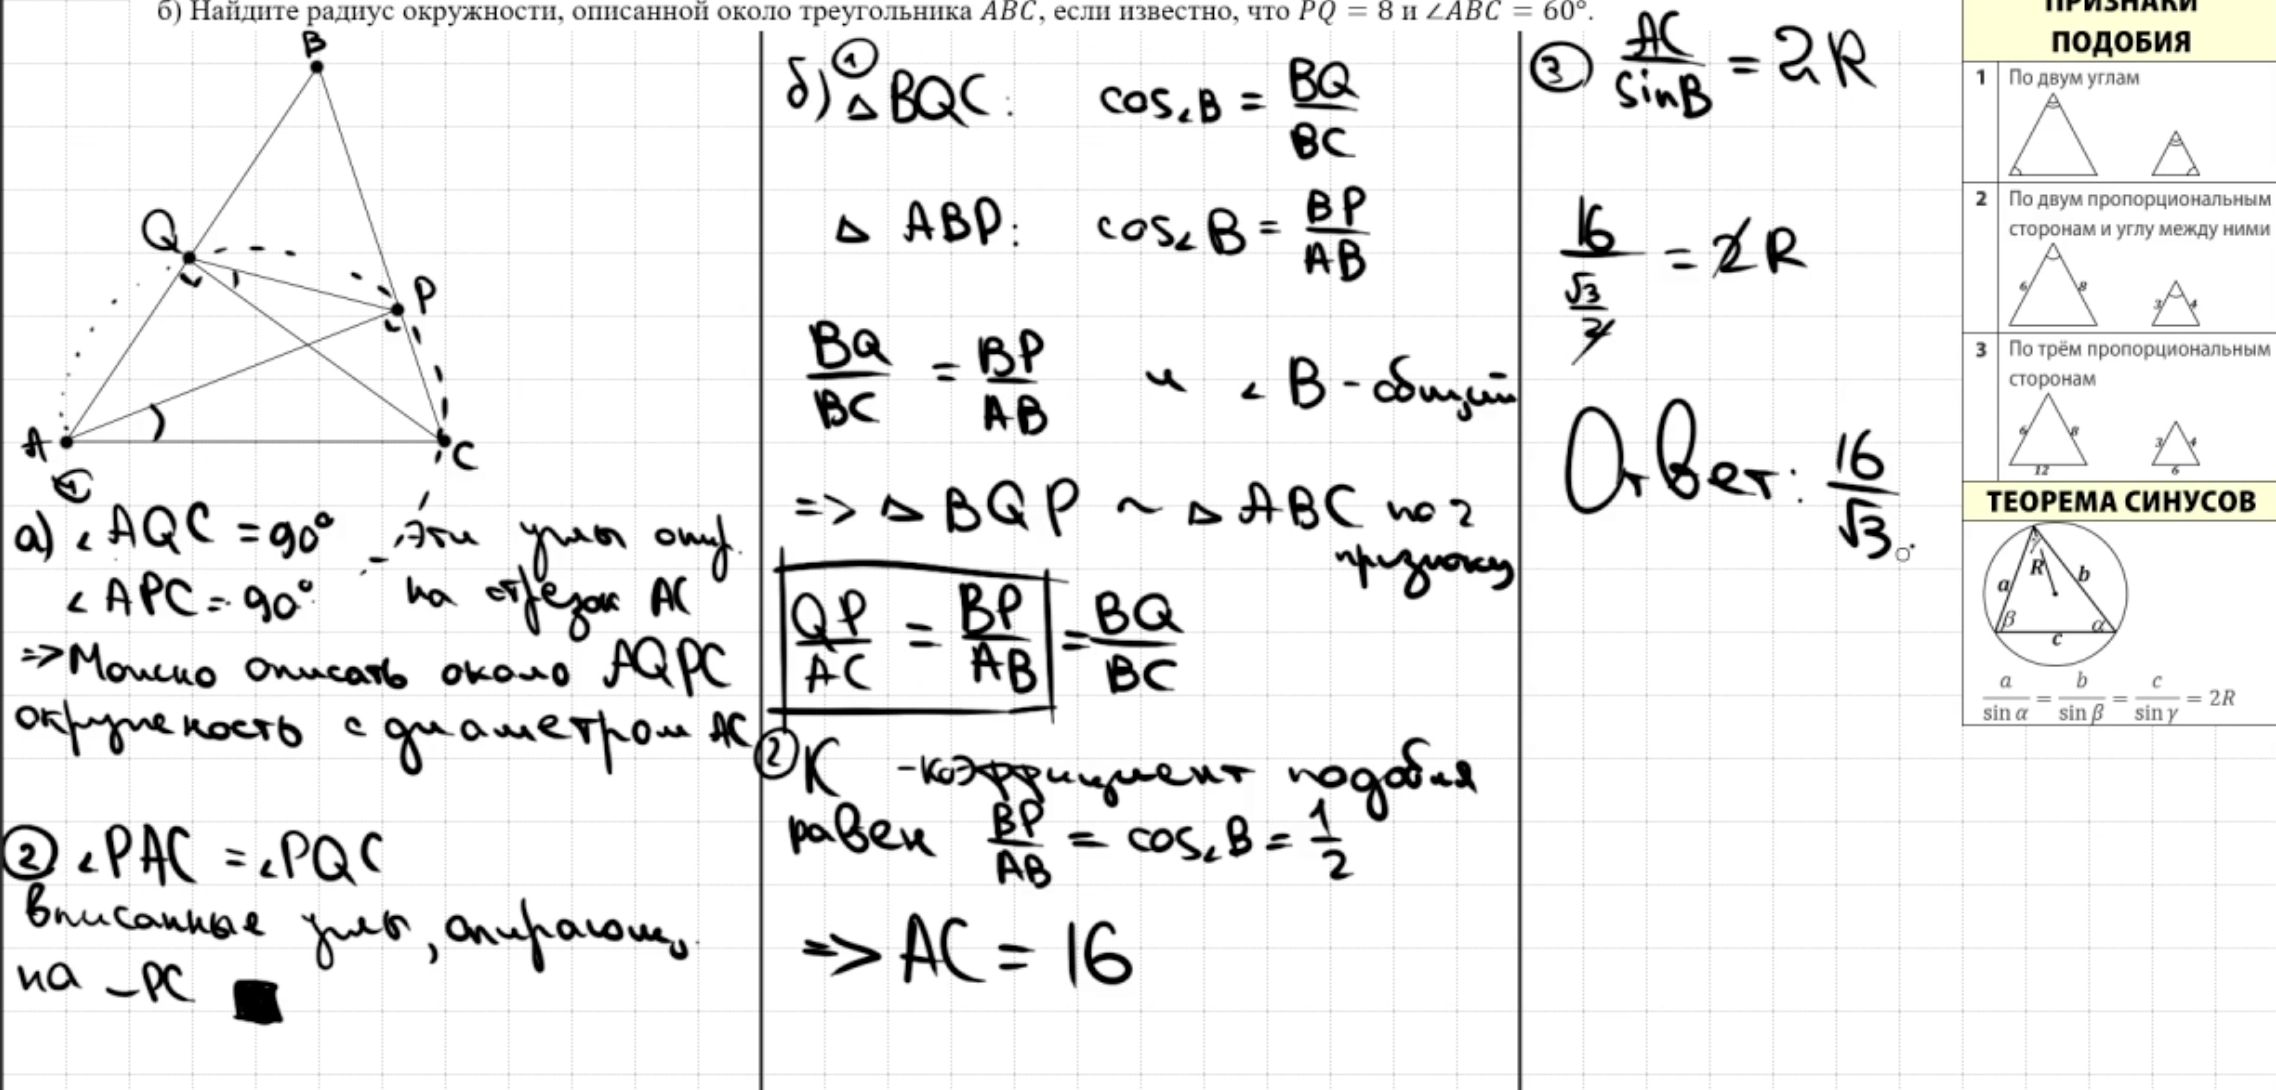 б) Найдите радиус окружности, описанной около треугольника ABC, если известно, что PQ = 8 и ∠ABC = 60°.
B
Q
P
A
C
а) ∠AQC = 90°
∠APC = 90°
- Эти углы опир.
на отрезок AC
=> Можно описать около AQPC
окружность с диаметром AC
② ∠PAC = ∠PQC
вписанные углы, опирающ.
на ⌣PC ■
б) ① △BQC: cos∠B = BQ/BC
△ABP: cos∠B = BP/AB
BQ/BC = BP/AB и ∠B - общий
=> △BQP ~ △ABC по 2
признаку
QP/AC = BP/AB = BQ/BC
② K - коэффициент подобия
равен BP/AB = cos∠B = 1/2
=> AC = 16
③ AC/sinB = 2R
16/(√3/2) = 2R
Ответ: 16/√3.
ПРИЗНАКИ
ПОДОБИЯ
1 По двум углам
2 По двум пропорциональным
сторонам и углу между ними
6 8 3 4
3 По трём пропорциональным
сторонам
6 8 3 4
12 6
ТЕОРЕМА СИНУСОВ
γ
a R b
β α
c
a/sin α = b/sin β = c/sin γ = 2R